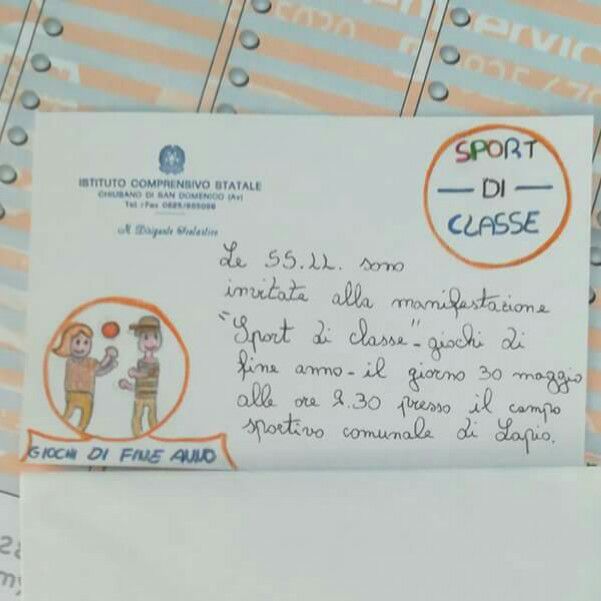 ISTITUTO COMPRENSIVO STATALE
CHIUSANO DI SAN DOMENICO (Av)
Tel. e Fax 0825/985098
Il Dirigente Scolastico
SPORT
DI
CLASSE
Le SS.LL. sono
invitate alla manifestazione
"Sport di classe" - giochi di
fine anno - il giorno 30 maggio
alle ore 8.30 presso il campo
sportivo comunale di Lapio.
GIOCHI DI FINE ANNO